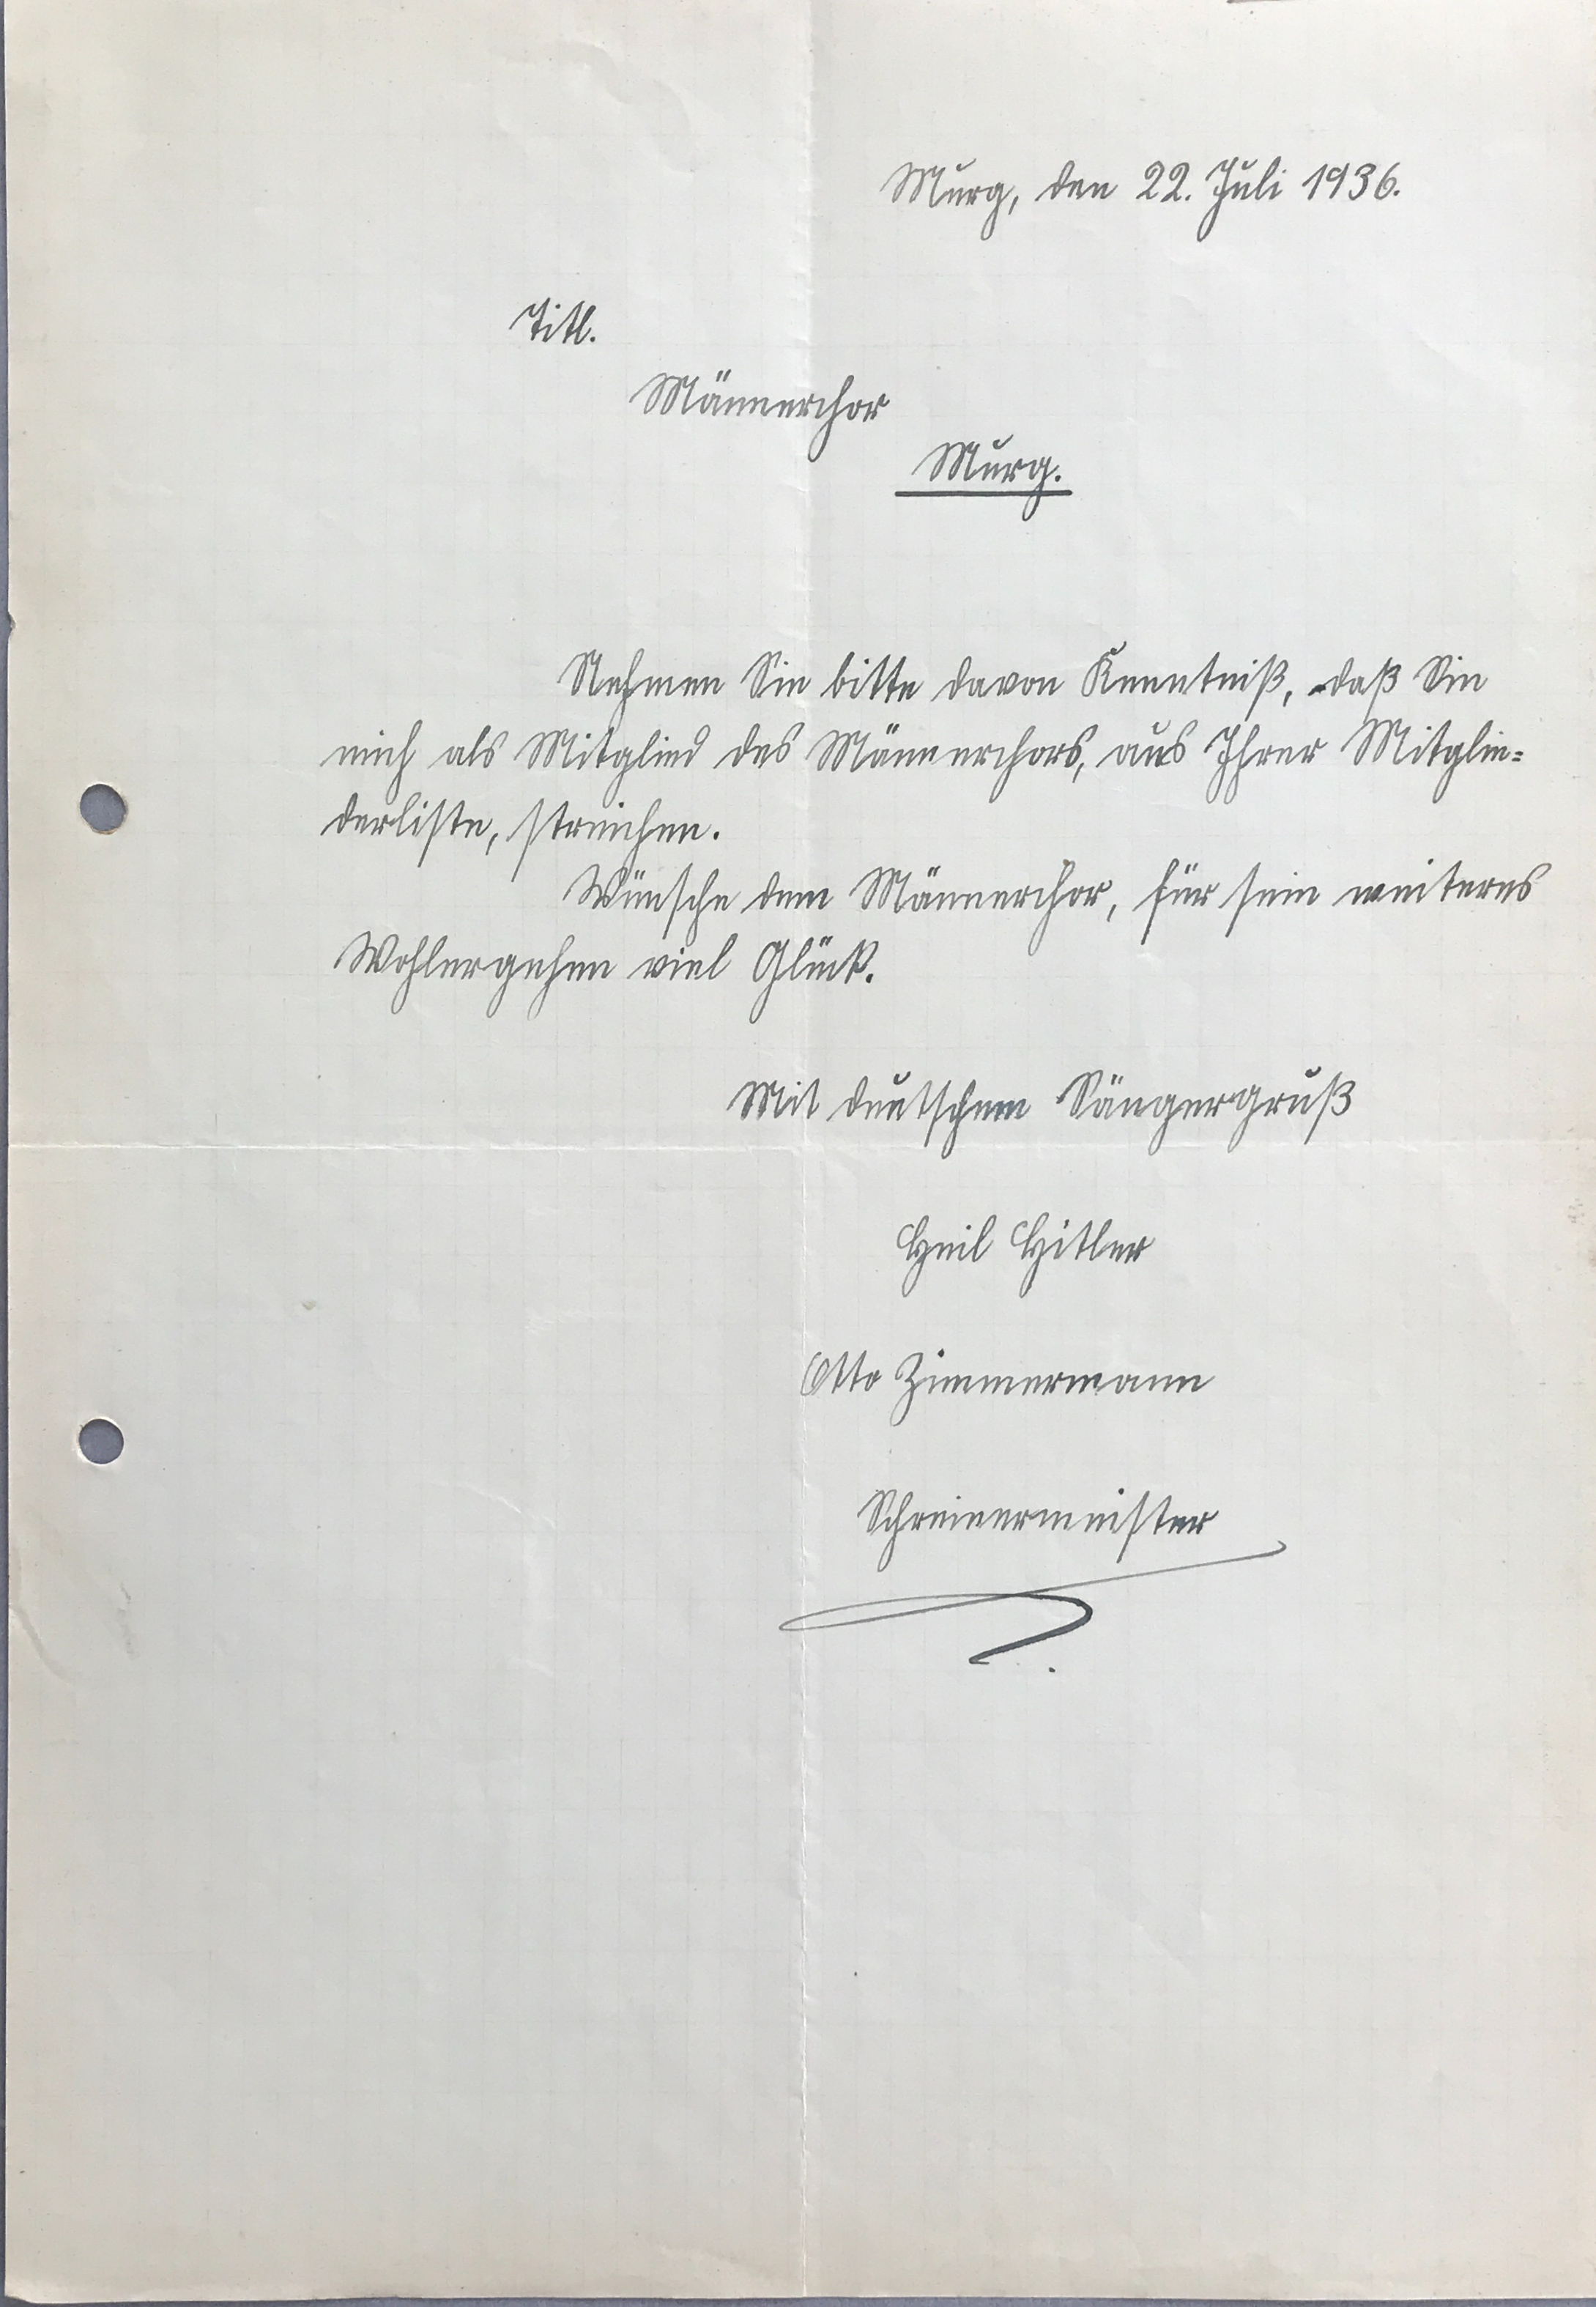 Murg, den 22. Juli 1936.
Titl.
Männerchor
Murg.
Nehmen Sie bitte davon Kenntniß, daß Sie
mich als Mitglied des Männerchors, aus Ihrer Mitglie=
derliste, streichen.
Wünsche dem Männerchor, für sein weiteres
Wohlergehen viel Glück.
Mit deutschem Sängergruß
Heil Hitler
Otto Zimmermann
Schreinermeister